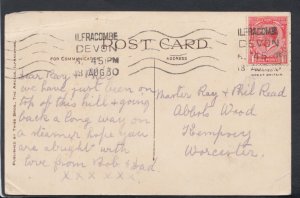 ILFRACOMBE
DEVON
45 PM
18 AUG 30
POST CARD
FOR COMMUNICATION
ADDRESS
ILFRACOMBE
DEVON
Dear Ray &
we have just been on
top of this hill & going
back a long way on
a steamer hope you
are alright with
love from Bob & Dad
x x x x x x
Master Ray & Phil Read
Abbots Wood
Kempsey
Worcester